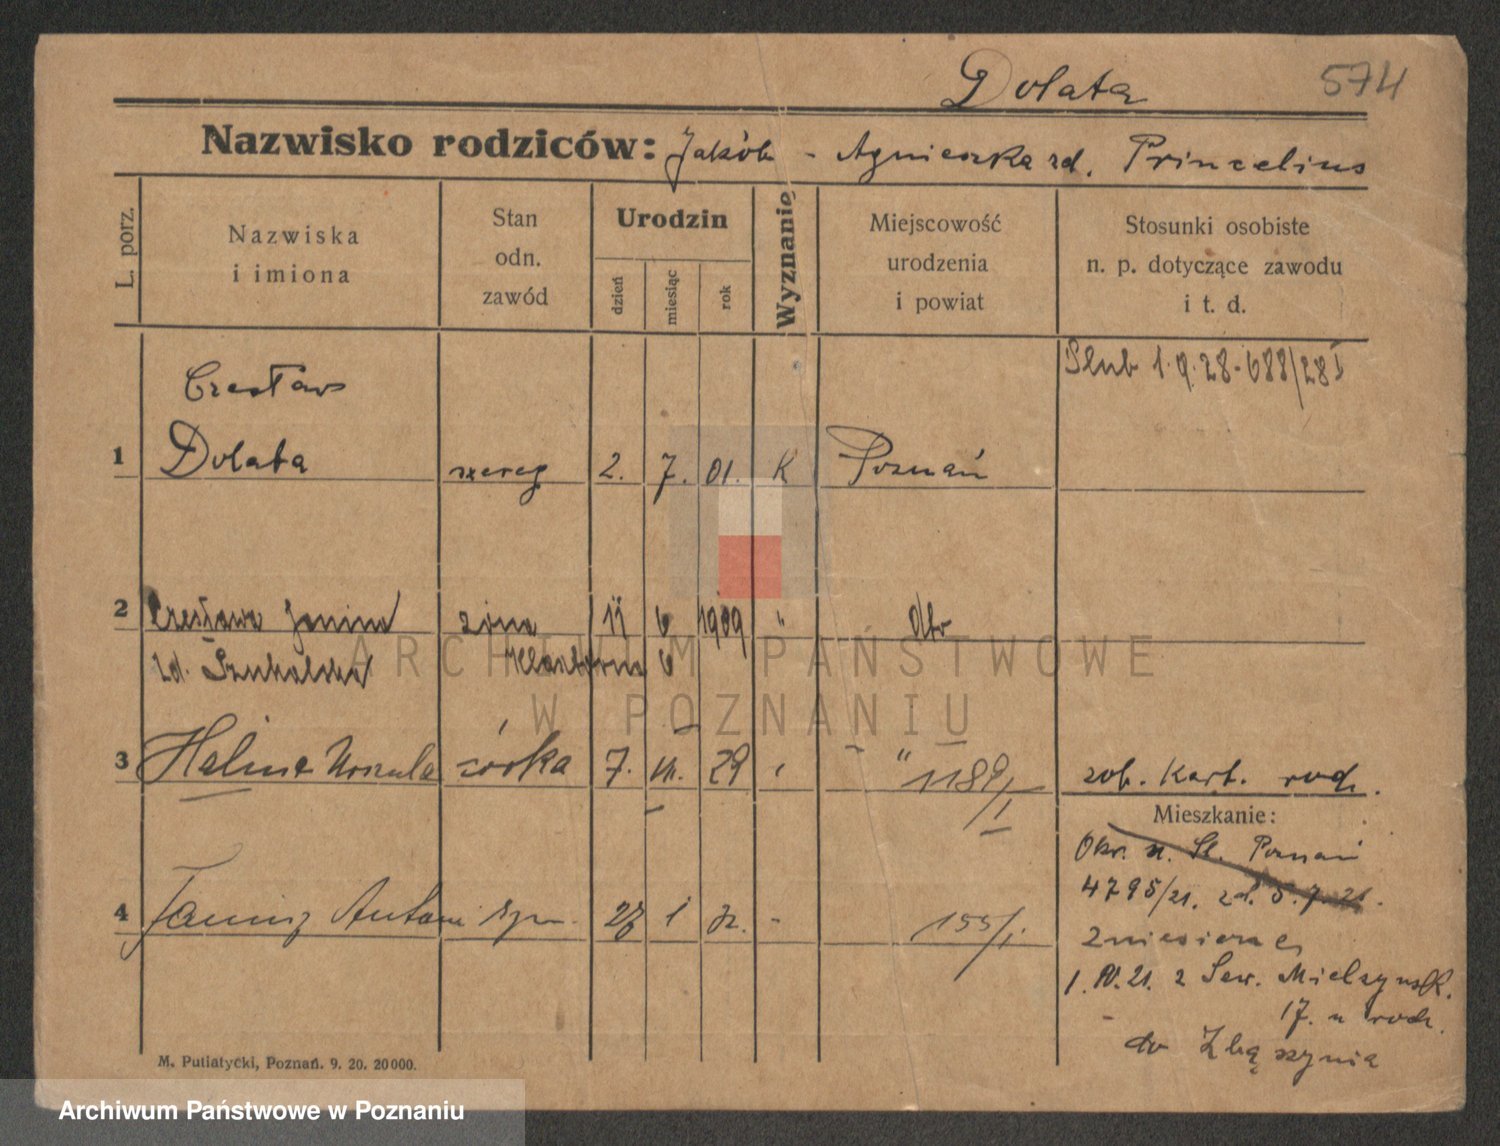 Dolata
574
Nazwisko rodziców: Jakób - Agnieszka zd. Princelius
L. porz.
Nazwiska
i imiona
Stan
odn.
zawód
Urodzin
dzień
miesiąc
rok
Wyznanie
Miejscowość
urodzenia
i powiat
Stosunki osobiste
n. p. dotyczące zawodu
i t. d.
Ślub 1.9.28-688/28 I
Czesław
1 Dolata szereg 2. 7. 01. K Poznań
2 Czesława Janina żona 17 6 1909 "
zd. 6
3 Halina Urszula córka 7. 29 " 1189/I zob. Kart. rodz.
Mieszkanie:
Okr. Poznań
4795/21. zd. 5.7.21.
4 Antoni syn 1 32. - 155/I.
1.IV.21. z Sew. Mielżyńsk.
17. u rodz.
do Zbąszynia
M. Putiatycki, Poznań. 9. 20. 20000.
ARCHIWUM PAŃSTWOWE
W POZNANIU
Archiwum Państwowe w Poznaniu